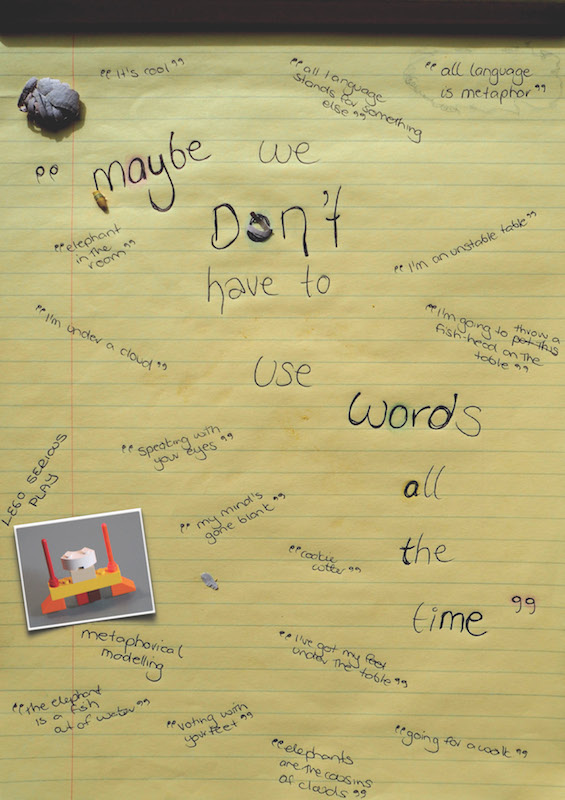 "it's cool"
"all language
stands for something
else"
"all language
is metaphor"
"maybe we
Don't
have to
use
words
all
the
time"
"elephant
in the
room"
"I'm an unstable table"
"I'm under a cloud"
"I'm going to throw a
put this
fish-head on the
table"
"speaking with
your eyes"
LEGO SERIOUS
PLAY
"my mind's
gone blank"
"cookie
cutter"
metaphorical
modelling
"I've got my feet
under the table"
"the elephant
is a fish
out of water"
"voting with
your feet"
"going for a walk"
"elephants
are the cousins
of clouds"